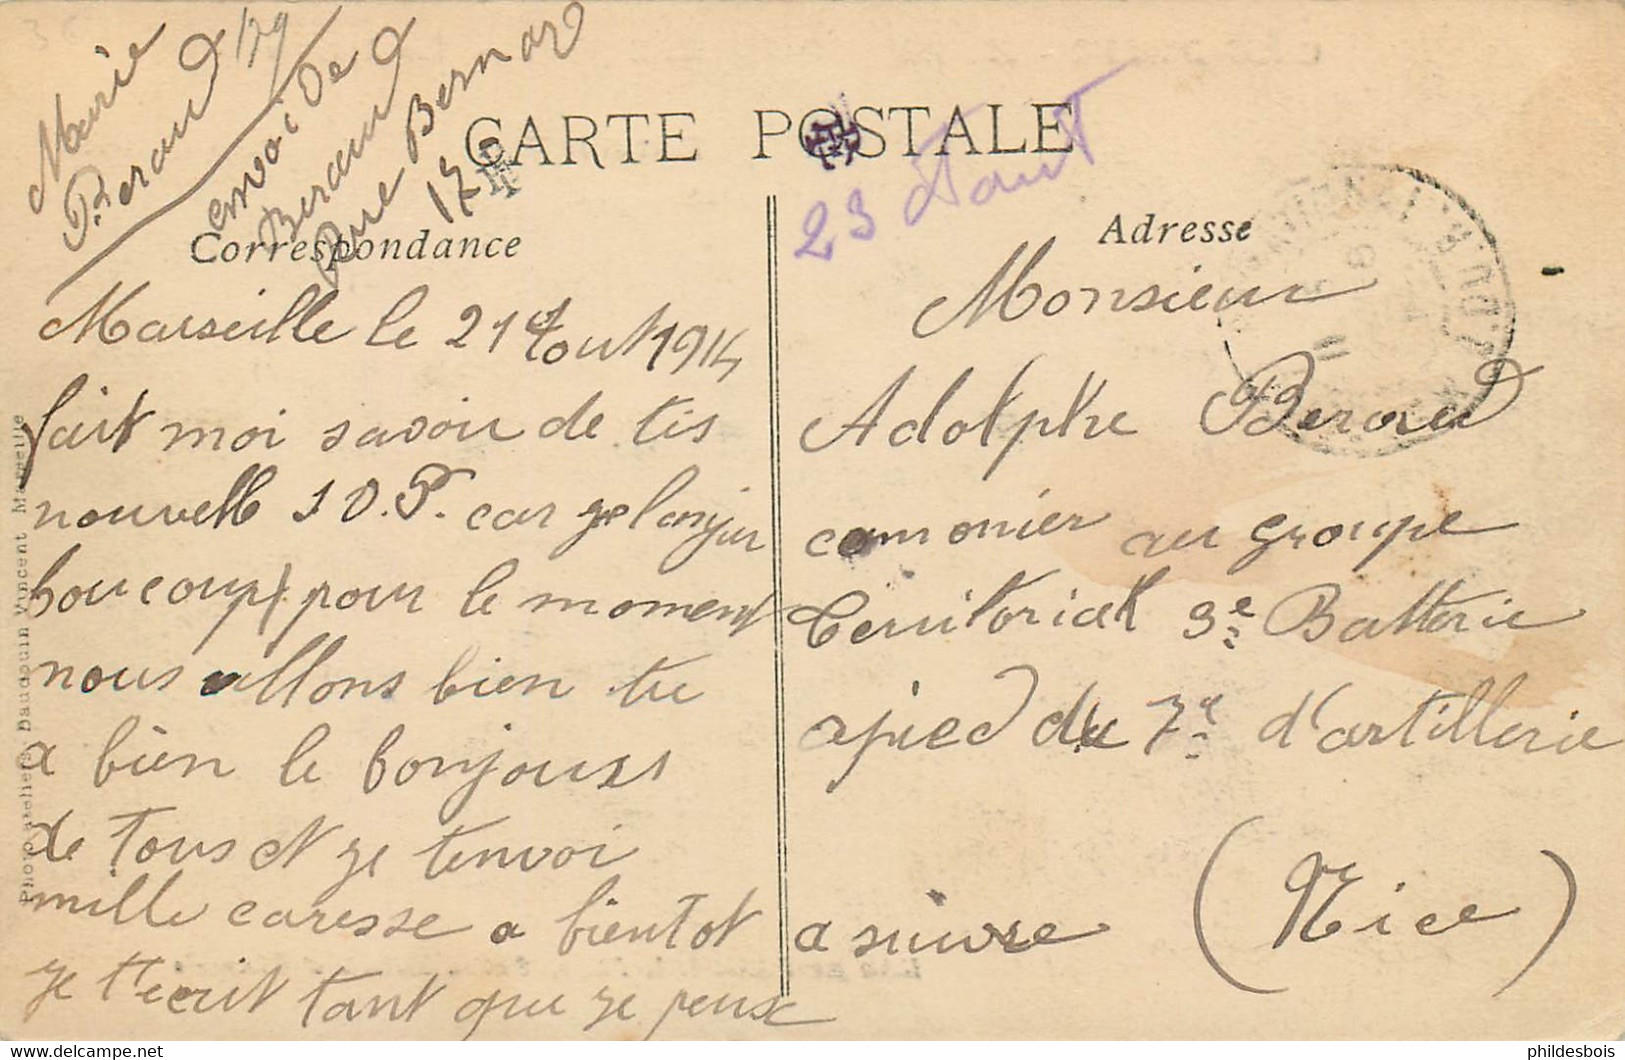 Marie
Beraud 129
envoi De
Beraud
Rue Bernard
175
CARTE POSTALE
23 Aout
Correspondance
Marseille le 21 Aout 1914
fait moi savoir de tis
nouvelle S O. P. car je langui
boucoup pour le moment
nous allons bien tu
a bien le bonjours
de Tous et je tenvoi
mille caresse a bientot
je t'ecrit tant que je peux
Photo ateliers Baudouin Vincent Marseille
Adresse
Monsieur
Adolphe Beraud
cannonier au groupe
Territorial 3e Batterie
apied du 7e d'artillerie
(Nice)
a suivre
phildesbois